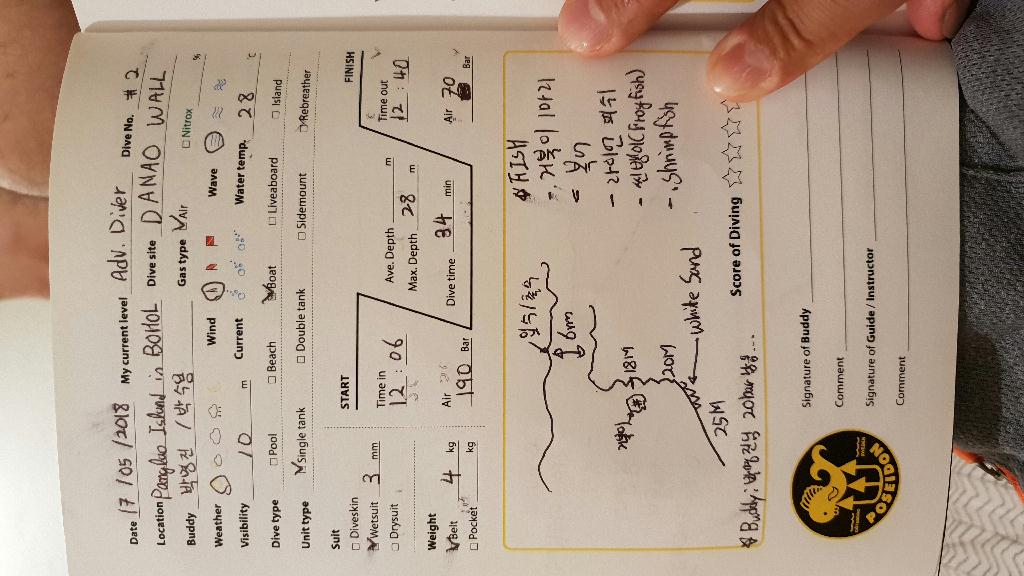 Date 17/05/2018 My current level Adv. Diver Dive No. #2
Location Panglao Island in BOHOL Dive site DANAO WALL
Buddy 박명진 / 박수남 Gas type Air Nitrox %
Weather Wind Wave
Visibility 10 m Current Water temp. 28 c
Dive type Pool Beach Boat Liveaboard Island
Unit type Single tank Double tank Sidemount Rebreather
Suit
Diveskin
Wetsuit 3 mm
Drysuit
Weight
Belt 4 kg
Pocket kg
START
Time in
12 : 06
Air 190 Bar
Ave. Depth m
Max. Depth 28 m
Dive time 34 min
FINISH
Time out
12 : 40
Air 70 Bar
입수/출수
6m
18M
20M
White Sand
25M
FISH
거북이 1마리
복어
- 라이언 피쉬
- 씬벵이(Frogfish)
- Shrimp fish
Buddy: 박명진님 20bar
Score of Diving
Signature of Buddy
Comment
Signature of Guide / Instructor
Comment
POSEIDON